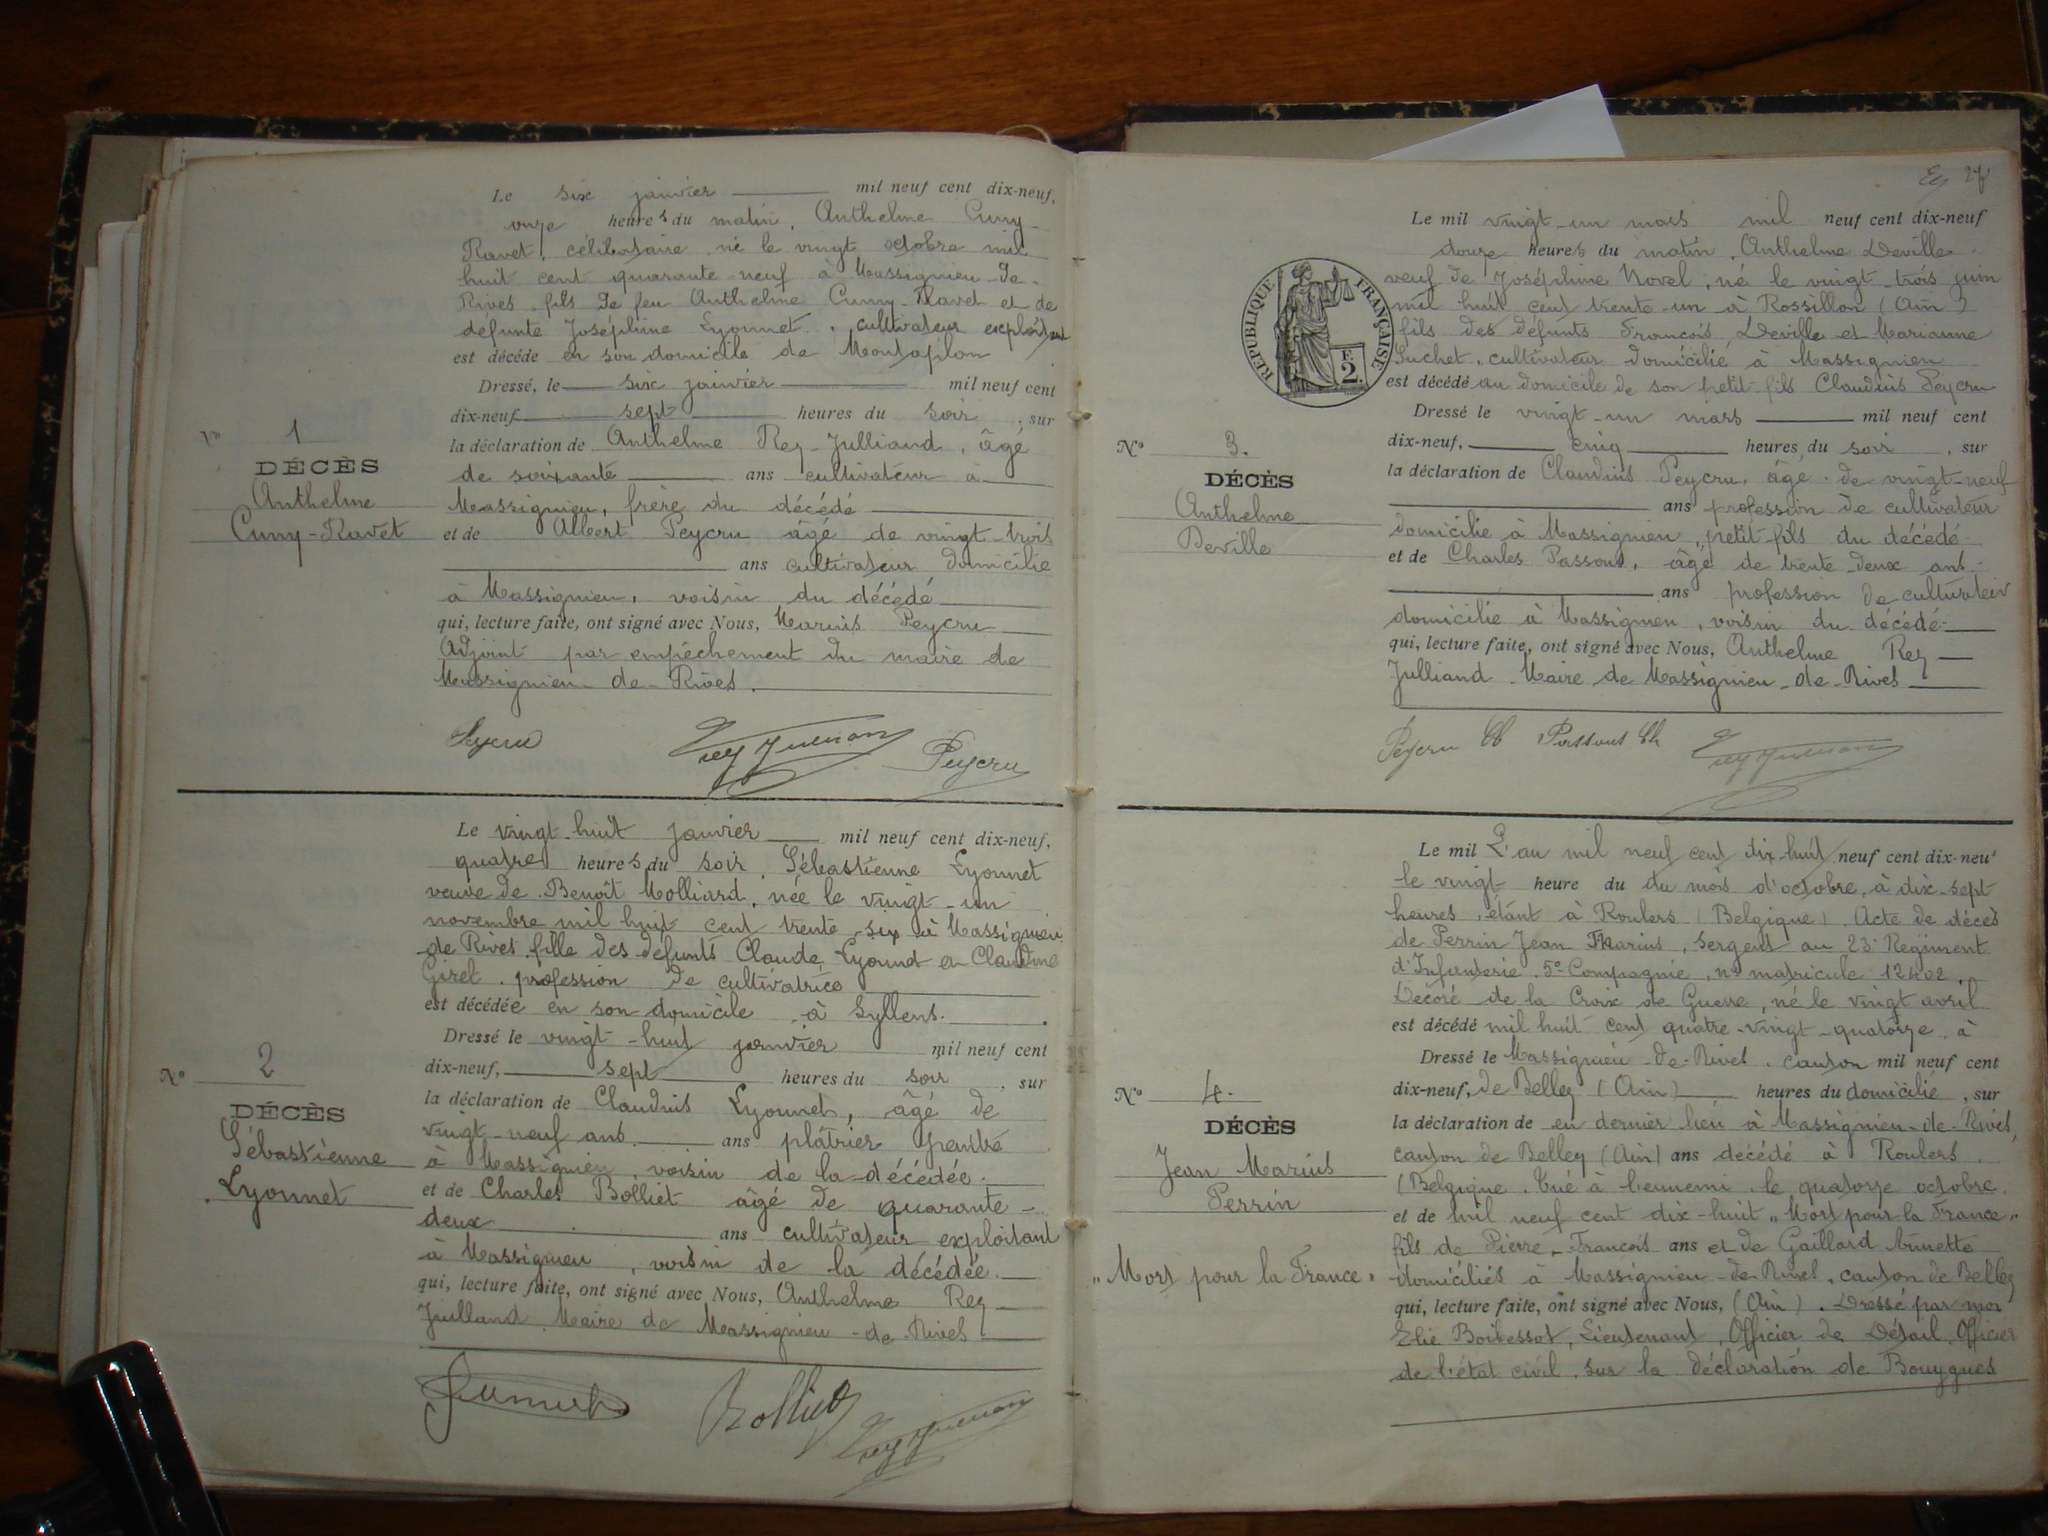 Le six janvier mil neuf cent dix-neuf,
onze heures du matin, Anthelme Cuny-
Ravet, célibataire né le vingt octobre mil
huit cent quarante neuf à Massignieu-de-
Rives, fils de feu Anthelme Cuny-Ravet et de
défunte Joséphine Lyonnet, cultivateur exploitant
est décédé en son domicile de Montaplan
Dressé, le six janvier mil neuf cent
dix-neuf sept heures du soir, sur
la déclaration de Anthelme Rey-Julliand, âgé
de soixante ans cultivateur à
Massignieu, frère du décédé
et de Albert Peycru âgé de vingt-trois
ans cultivateur domicilié
à Massignieu, voisin du décédé
qui, lecture faite, ont signé avec Nous, Marius Peycru
Adjoint par empêchement du maire de
Massignieu-de-Rives.
No 1
DÉCÈS
Anthelme
Cuny-Ravet
Peycru Peycru
Le vingt-huit janvier mil neuf cent dix-neuf,
quatre heures du soir, Sébastienne Lyonnet
veuve de Benoît Molliard, née le vingt-un
novembre mil huit cent trente-six à Massignieu
de Rives fille des défunts Claude Lyonnet et Claudine
Giret, profession de cultivatrice
est décédée en son domicile à Syllens.
Dressé le vingt-huit janvier mil neuf cent
dix-neuf, sept heures du soir, sur
la déclaration de Claudius Lyonnet, âgé de
vingt-neuf ans ans plâtrier peintre
à Massignieu, voisin de la décédée.
et de Charles Bolliet âgé de quarante-
deux ans cultivateur exploitant
à Massignieu, voisin de la décédée.
qui, lecture faite, ont signé avec Nous, Anthelme Rey-
Julliand Maire de Massignieu-de-Rives
No 2
DÉCÈS
Sébastienne
Lyonnet
Bolliet
27
Le mil vingt-un mars mil neuf cent dix-neuf
douze heures du matin, Anthelme Deville
veuf de Joséphine Novel, né le vingt-trois juin
mil huit cent trente-un à Rossillon (Ain)
fils des défunts François Deville et Marianne
Suchet, cultivateur domicilié à Massignieu
est décédé au domicile de son petit-fils Claudius Peycru
Dressé le vingt-un mars mil neuf cent
dix-neuf, cinq heures du soir, sur
la déclaration de Claudius Peycru, âgé de vingt-neuf
ans profession de cultivateur
domicilié à Massignieu, petit-fils du décédé
et de Charles Passout, âgé de trente-deux ans
ans profession de cultivateur
domicilié à Massignieu, voisin du décédé
qui, lecture faite, ont signé avec Nous, Anthelme Rey-
Julliand Maire de Massignieu-de-Rives
RÉPUBLIQUE FRANÇAISE
F.
2.
No 3.
DÉCÈS
Anthelme
Deville
Peycru Cl Passout Ch
Le mil L'an mil neuf cent dix-huit neuf cent dix-neuf
le vingt heure du du mois d'octobre à dix-sept
heures, étant à Roulers (Belgique) Acte de décès
de Perrin Jean Marius, Sergent au 23e Régiment
d'Infanterie, 5e Compagnie, no matricule 12402,
Décoré de la Croix de Guerre, né le vingt avril
est décédé mil huit cent quatre-vingt-quatorze, à
Dressé le Massignieu-de-Rives, canton mil neuf cent
dix-neuf, de Belley (Ain) heures du domicilié, sur
la déclaration de en dernier lieu à Massignieu-de-Rives,
canton de Belley (Ain) ans décédé à Roulers
(Belgique. Tué à l'ennemi le quatorze octobre
et de mil neuf cent dix-huit "Mort pour la France"
fils de Pierre-François ans et de Gaillard Annette
domiciliés à Massignieu-de-Rives, canton de Belley
qui, lecture faite, ont signé avec Nous, (Ain). Dressé par moi
Elie Boibessot, Lieutenant, Officier de Détail, Officier
de l'état civil, sur la déclaration de Bouygues
No 4.
DÉCÈS
Jean Marius
Perrin
"Mort pour la France"